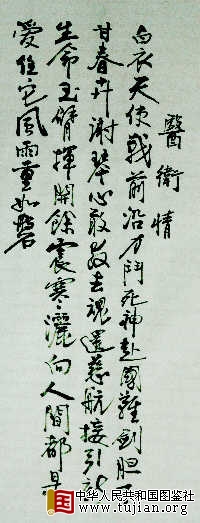 醫衛情
白衣天使戰前沿力鬥死神赴國難劍胆不
甘春卉謝琴心敢教去魂還慈航接引新
生命玉臂揮開餘震寒灑向人間都是
愛任它風雨重如磐
中华人民共和国图鉴社
www.tujian.org